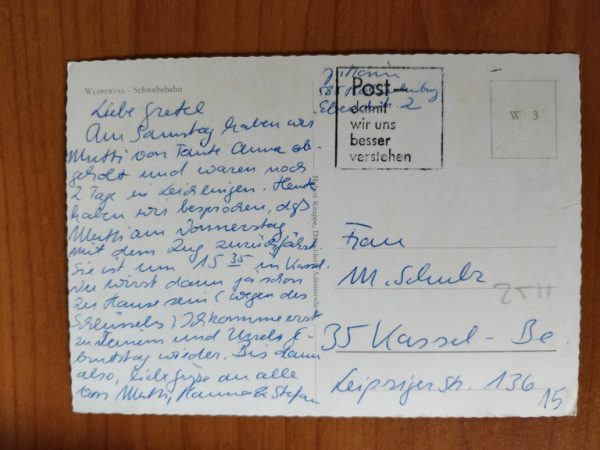 WUPPERTAL - Schwebebahn
Liebe Gretel
Am Samstag haben wir
Mutti von Tante Anna ab-
geholt und waren noch
2 Tage in Leichlingen. Heute
haben wir besprochen, daß
Mutti am Donnerstag
mit dem Zug zurückfährt
Sie ist um 15 35 in Kassel.
Du wirst dann ja schon
zu Hause sein (wegen des
Schlüssels) Ich komme erst
zu und Ge-
burtstag wieder. Bis dann
also, liebe Grüße an alle
von Mutti, Hanna & Stefan
Post-
damit
wir uns
besser
verstehen
W 3
Frau
M. Schulz
35 Kassel - Be
Leipzigerstr. 136
15